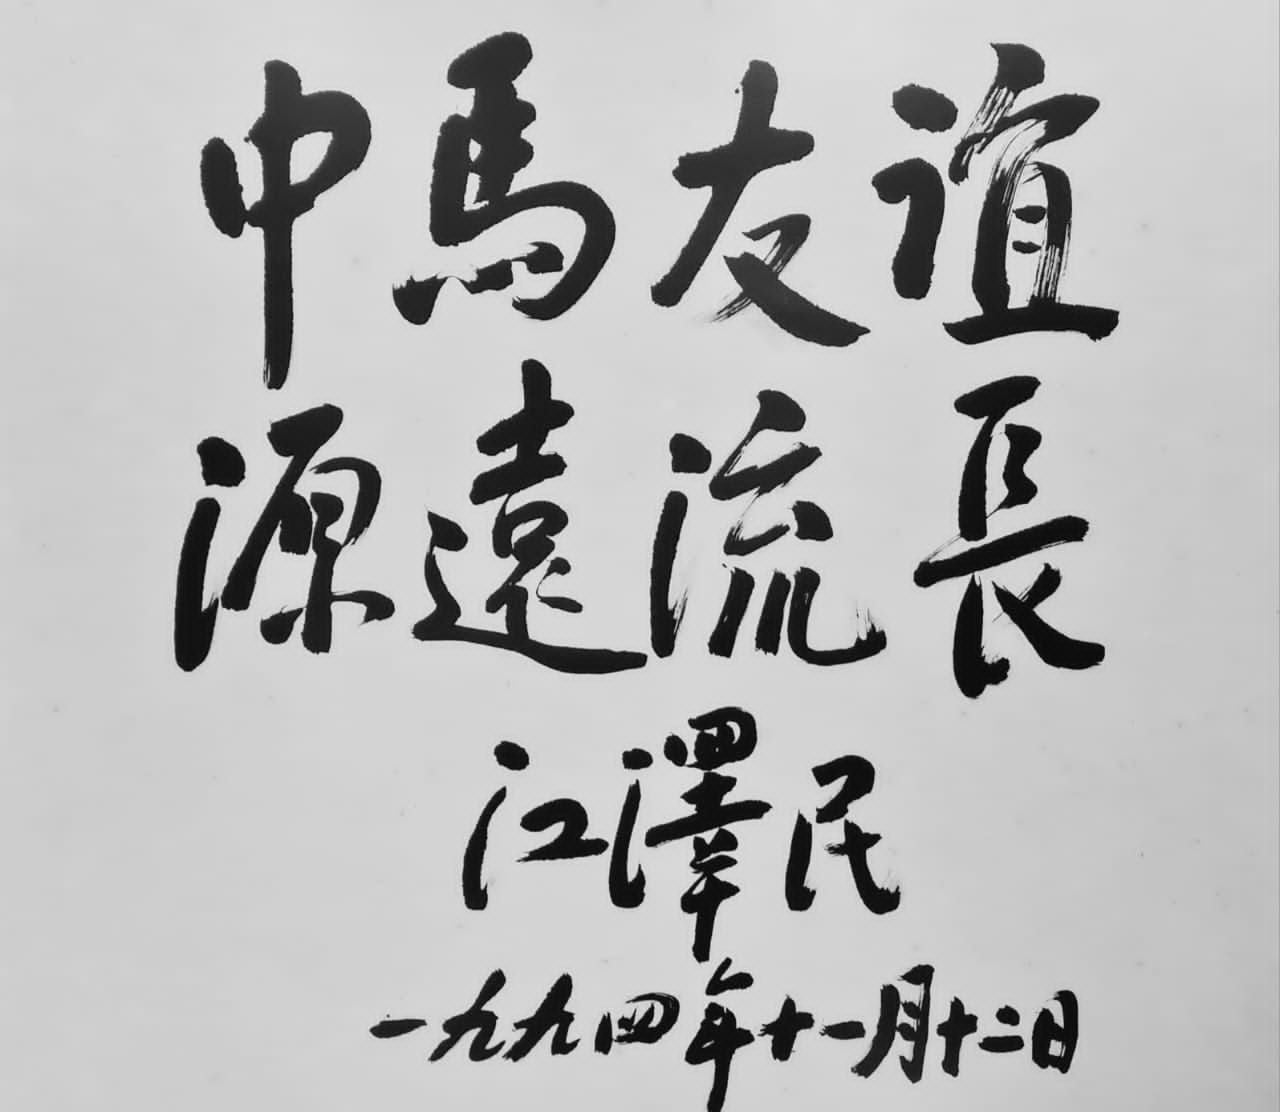 中馬友誼
源遠流長
江澤民
一九九四年十一月十二日